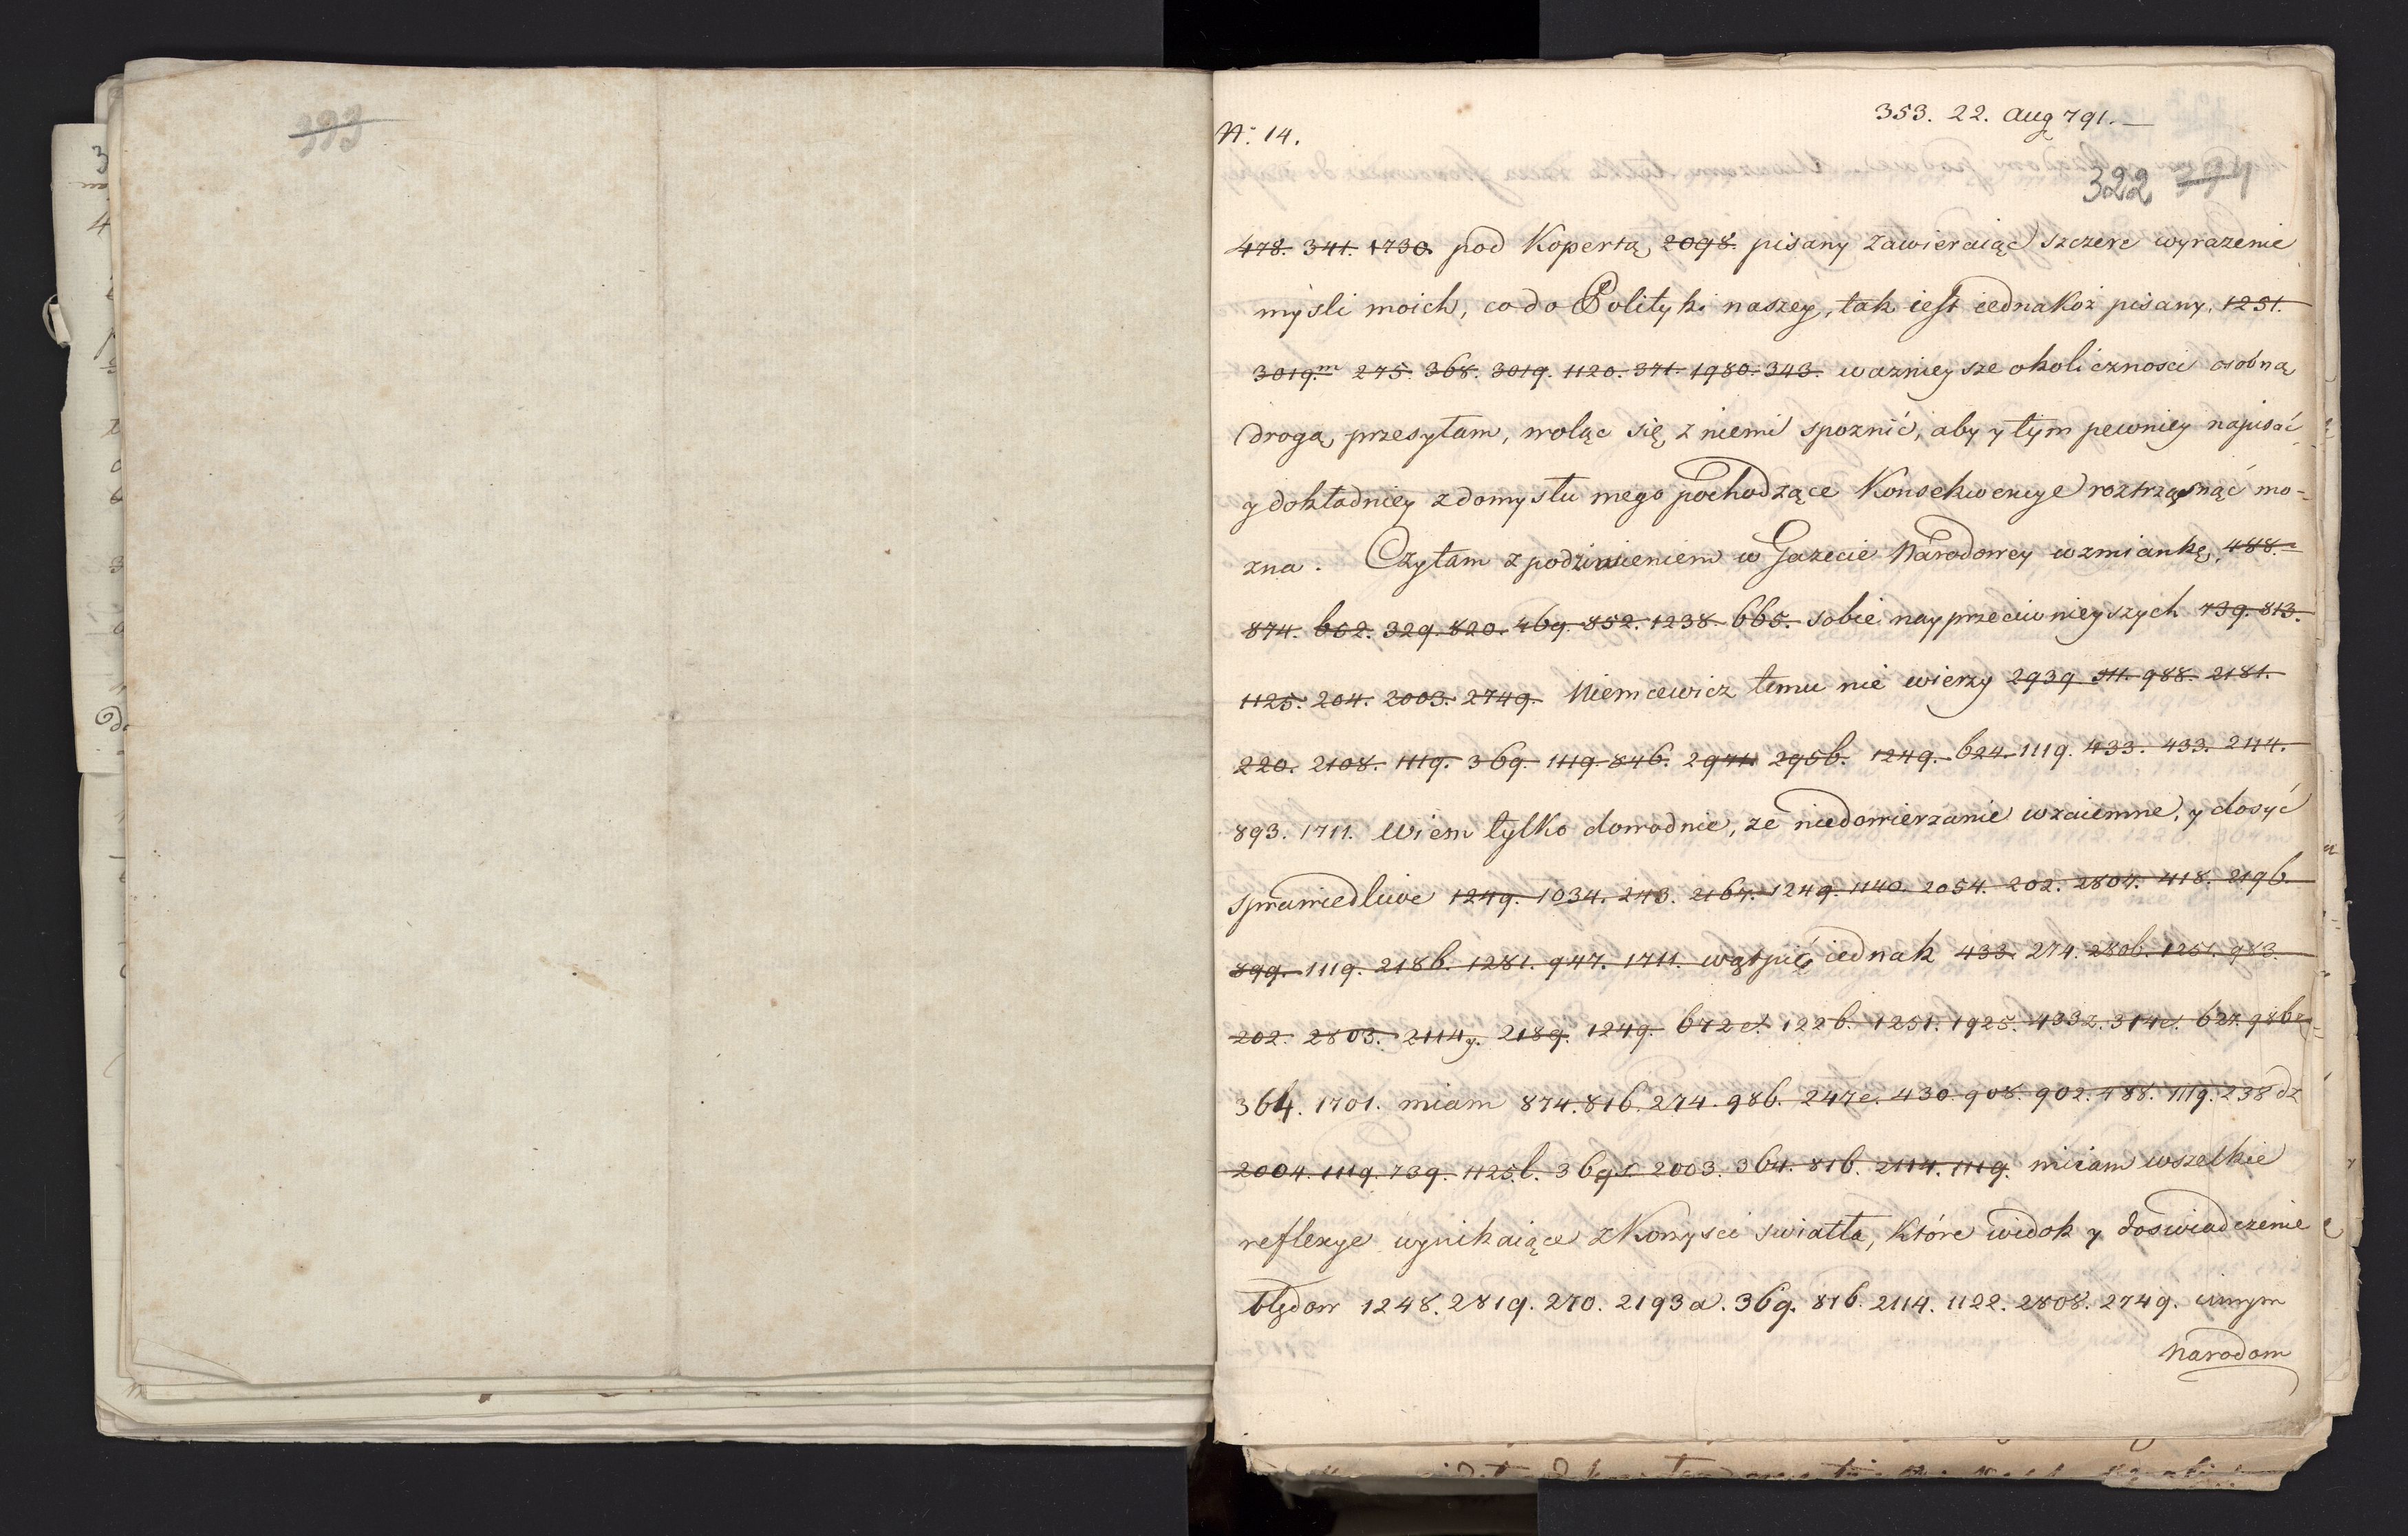 393
N: 14.
353. 22. Aug 791.
322 394
478. 341. 1730. pod Kopertą 2098. pisany zawieraiąc szczere wyrazenie
mysli moich, co do Polityki naszey, tak iest iednakoż pisany, 1251.
3019.m 275. 368. 3019. 1120. 371. 1980. 343. waznieysze okolicznosci osobną
drogą przesyłam, woląc się z niemi spoznić, aby y tym pewniey napisać
y dokładniey z domysłu mego pochodzące Konsekwencye roztrząsnąć mo-
zna. Czytam z podziwieniem w Gazecie Narodowey wzmiankę, 488.
874. 662. 329. 820. 469. 852. 1238. 665. sobie nayprzeciwnieyszych 739. 813.
1125. 204. 2003. 2749. Niemcewicz temu nie wierzy 2939 311. 988. 2181.
220. 2108. 1119. 369. 1119. 846. 2956. 1249. 624. 1119. 433. 433. 2114.
893. 1711. Wiem tylko dowodnie, ze niedowierzanie wzaiemne, y dosyć
sprawiedliwe 1249. 1034. 243. 2167. 1249. 1140. 2054. 202. 2807. 418. 2196.
899. 1119. 2186. 1281. 947. 1711. wątpić iednak 433. 274. 2806. 1251. 983.
202. 2803. 2114y. 2189. 1249. 672 e. 1226. 1251. 1925. 433z. 314e. 627. 986
364. 1701. miam 874. 816. 274. 986. 247e. 430. 908. 902. 488. 1119. 238 dz
2004. 1119. 739. 1125.l. 369s. 2003. 364. 816. 2114. 1119. miiam wszelkie
reflexye wynikaiące z Korzysci swiatła, które widok y doswiadczenie
błędow 1248. 2819. 270. 2193a. 369. 816. 2114. 1122. 2808. 2749. innym
Narodom